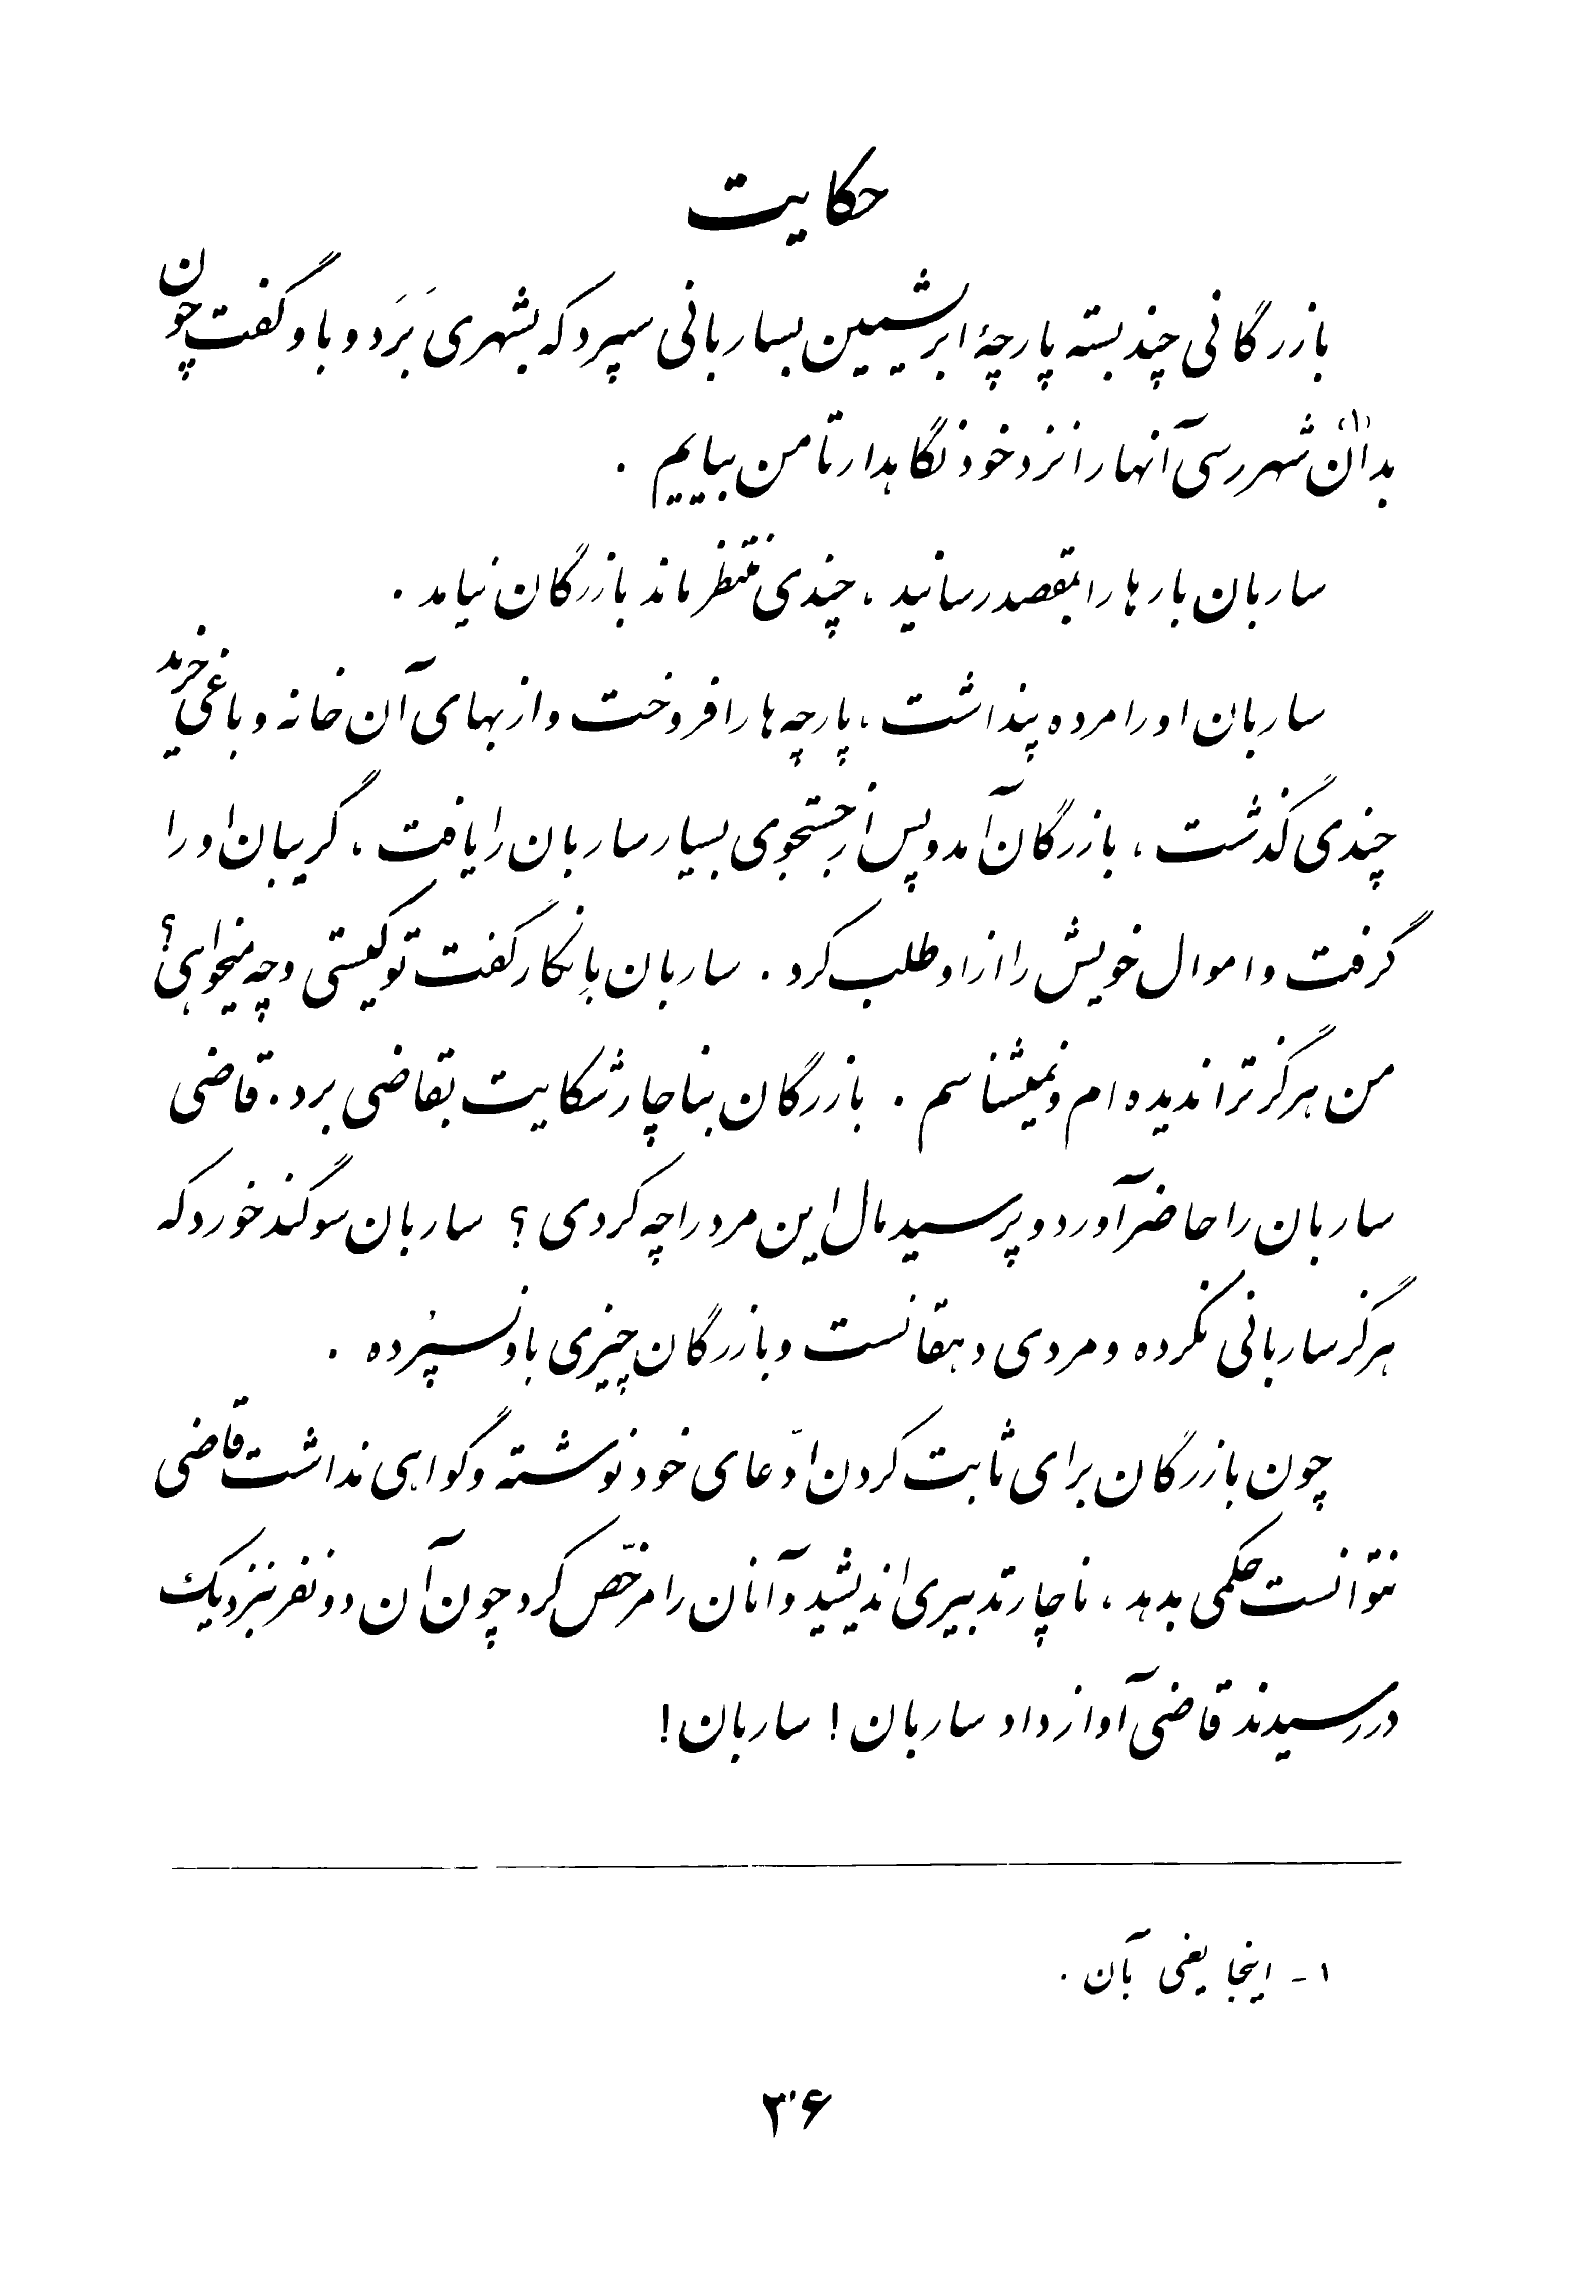 حکایت
بازرگانی چند بسته پارچهٔ ابریشمین بساربانی سپرد که بشهری بَرَد و باو گفت چون
بدان(۱) شهر رسی آنها را نزد خود نگاهدار تا من بیایم .
ساربان بارها را بمقصد رسانید ، چندی منتظر ماند بازرگان نیامد .
ساربان او را مرده پنداشت ، پارچه ها را فروخت و از بهای آن خانه و باغی خرید
چندی گذشت ، بازرگان آمد و پس از جستجوی بسیار ساربان را یافت ، گریبان او را
گرفت و اموال خویش را از او طلب کرد . ساربان بانکار گفت تو کیستی و چه میخواهی ؟
من هرگز ترا ندیده ام و نمیشناسم . بازرگان بناچار شکایت بقاضی برد . قاضی
ساربان را حاضر آورد و پرسید مال این مرد را چه کردی ؟ ساربان سوگند خورد که
هرگز ساربانی نکرده و مردی دهقانست و بازرگان چیزی باو نسپرده .
چون بازرگان برای ثابت کردن ادّعای خود نوشته و گواهی نداشت قاضی
نتوانست حکمی بدهد ، ناچار تدبیری اندیشید و آنان را مرخّص کرد چون آن دو نفر بنزدیک
در رسیدند قاضی آواز داد ساربان ! ساربان !
۱ - اینجا یعنی بآن .
۳۶